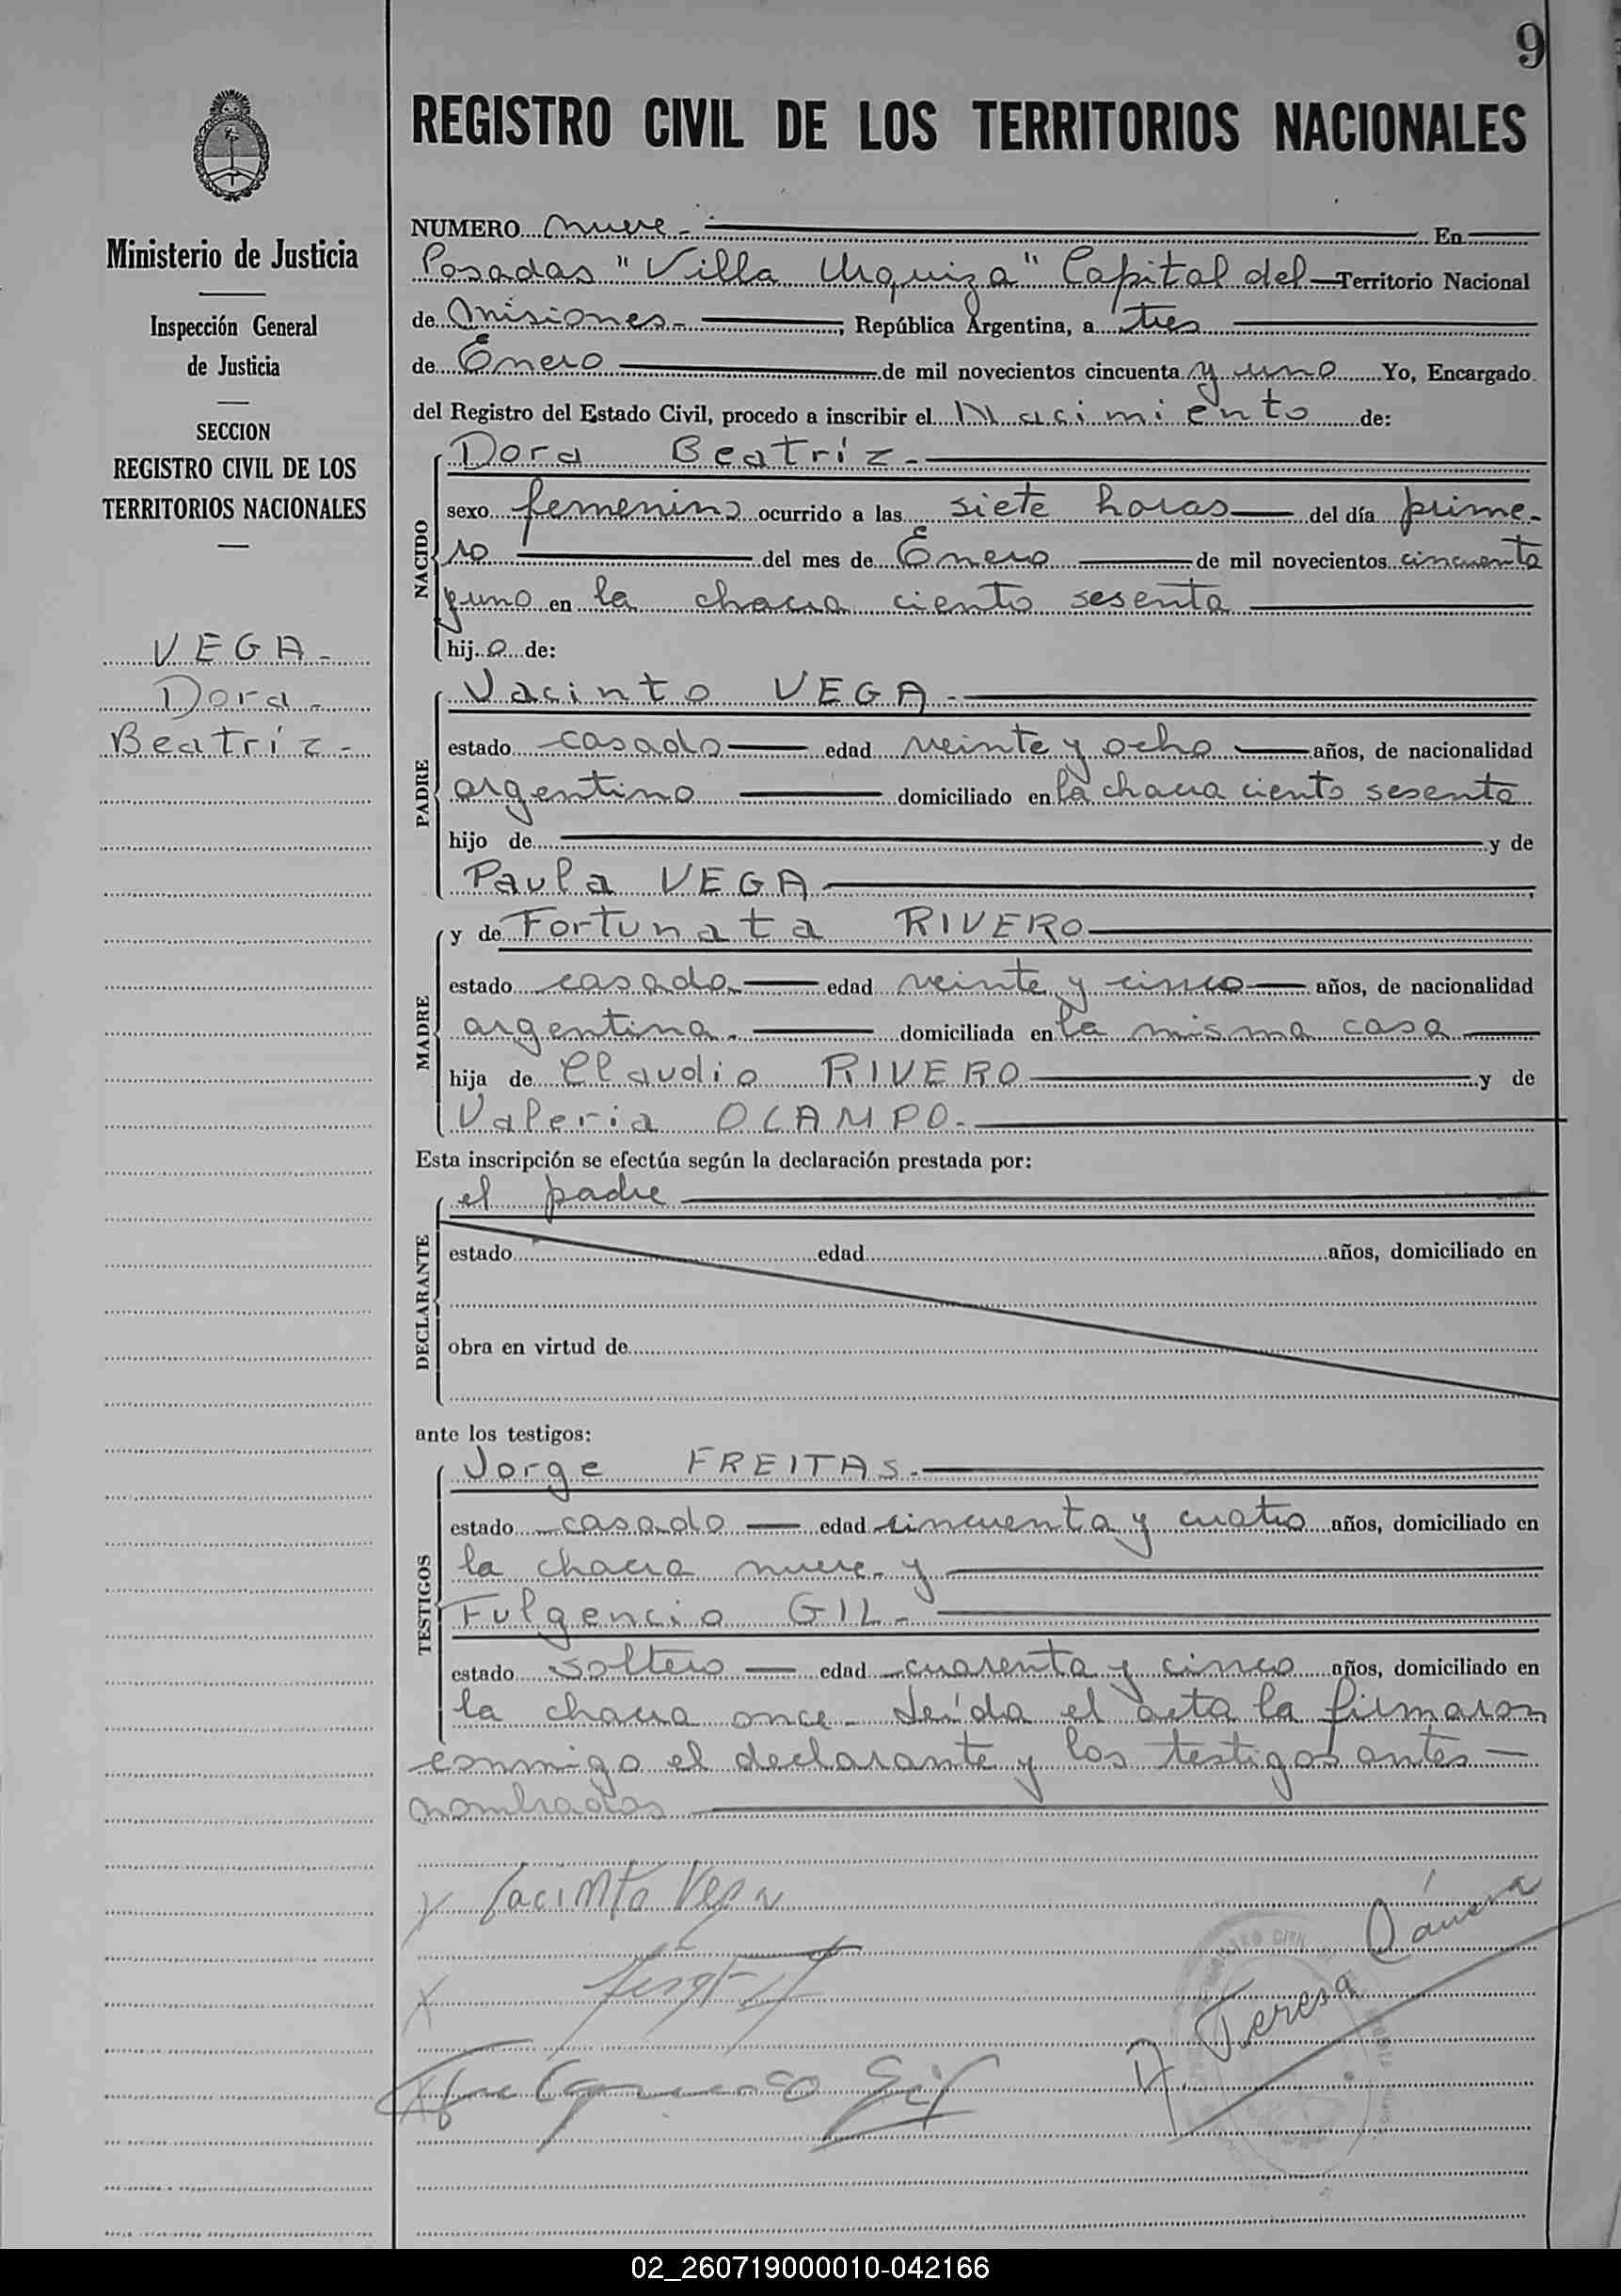 9
REGISTRO CIVIL DE LOS TERRITORIOS NACIONALES
Ministerio de Justicia
Inspección General
de Justicia
SECCION
REGISTRO CIVIL DE LOS
TERRITORIOS NACIONALES
VEGA -
Dora -
Beatríz -
NUMERO nueve - En
Posadas "Villa Urquiza" Capital del Territorio Nacional
de Misiones - , República Argentina, a tres
de Enero de mil novecientos cincuenta y uno Yo, Encargado
del Registro del Estado Civil, procedo a inscribir el Nacimiento de:
NACIDO
Dora Beatríz -
sexo femenino ocurrido a las siete horas del día prime-
ro del mes de Enero de mil novecientos cincuenta
y uno en la chacra ciento sesenta
hij a de:
PADRE
Jacinto VEGA -
estado casado edad veinte y ocho años, de nacionalidad
argentino domiciliado en la chacra ciento sesenta
hijo de y de
Paula VEGA ;
MADRE
y de Fortunata RIVERO
estado casada edad veinte y cinco años, de nacionalidad
argentina - domiciliada en la misma casa
hija de Claudio RIVERO y de
Valeria OCAMPO -
Esta inscripción se efectúa según la declaración prestada por:
DECLARANTE
el padre
estado edad años, domiciliado en
obra en virtud de
ante los testigos:
TESTIGOS
Jorge FREITAS -
estado casado edad cincuenta y cuatro años, domiciliado en
la chacra nueve - y
Fulgencio GIL -
estado soltero edad cuarenta y cinco años, domiciliado en
la chacra once - Leída el acta la firmaron
conmigo el declarante y los testigos antes
nombrados
x Jacinto Vega
x
x Fulgencio Gil
Teresa
02_260719000010-042166